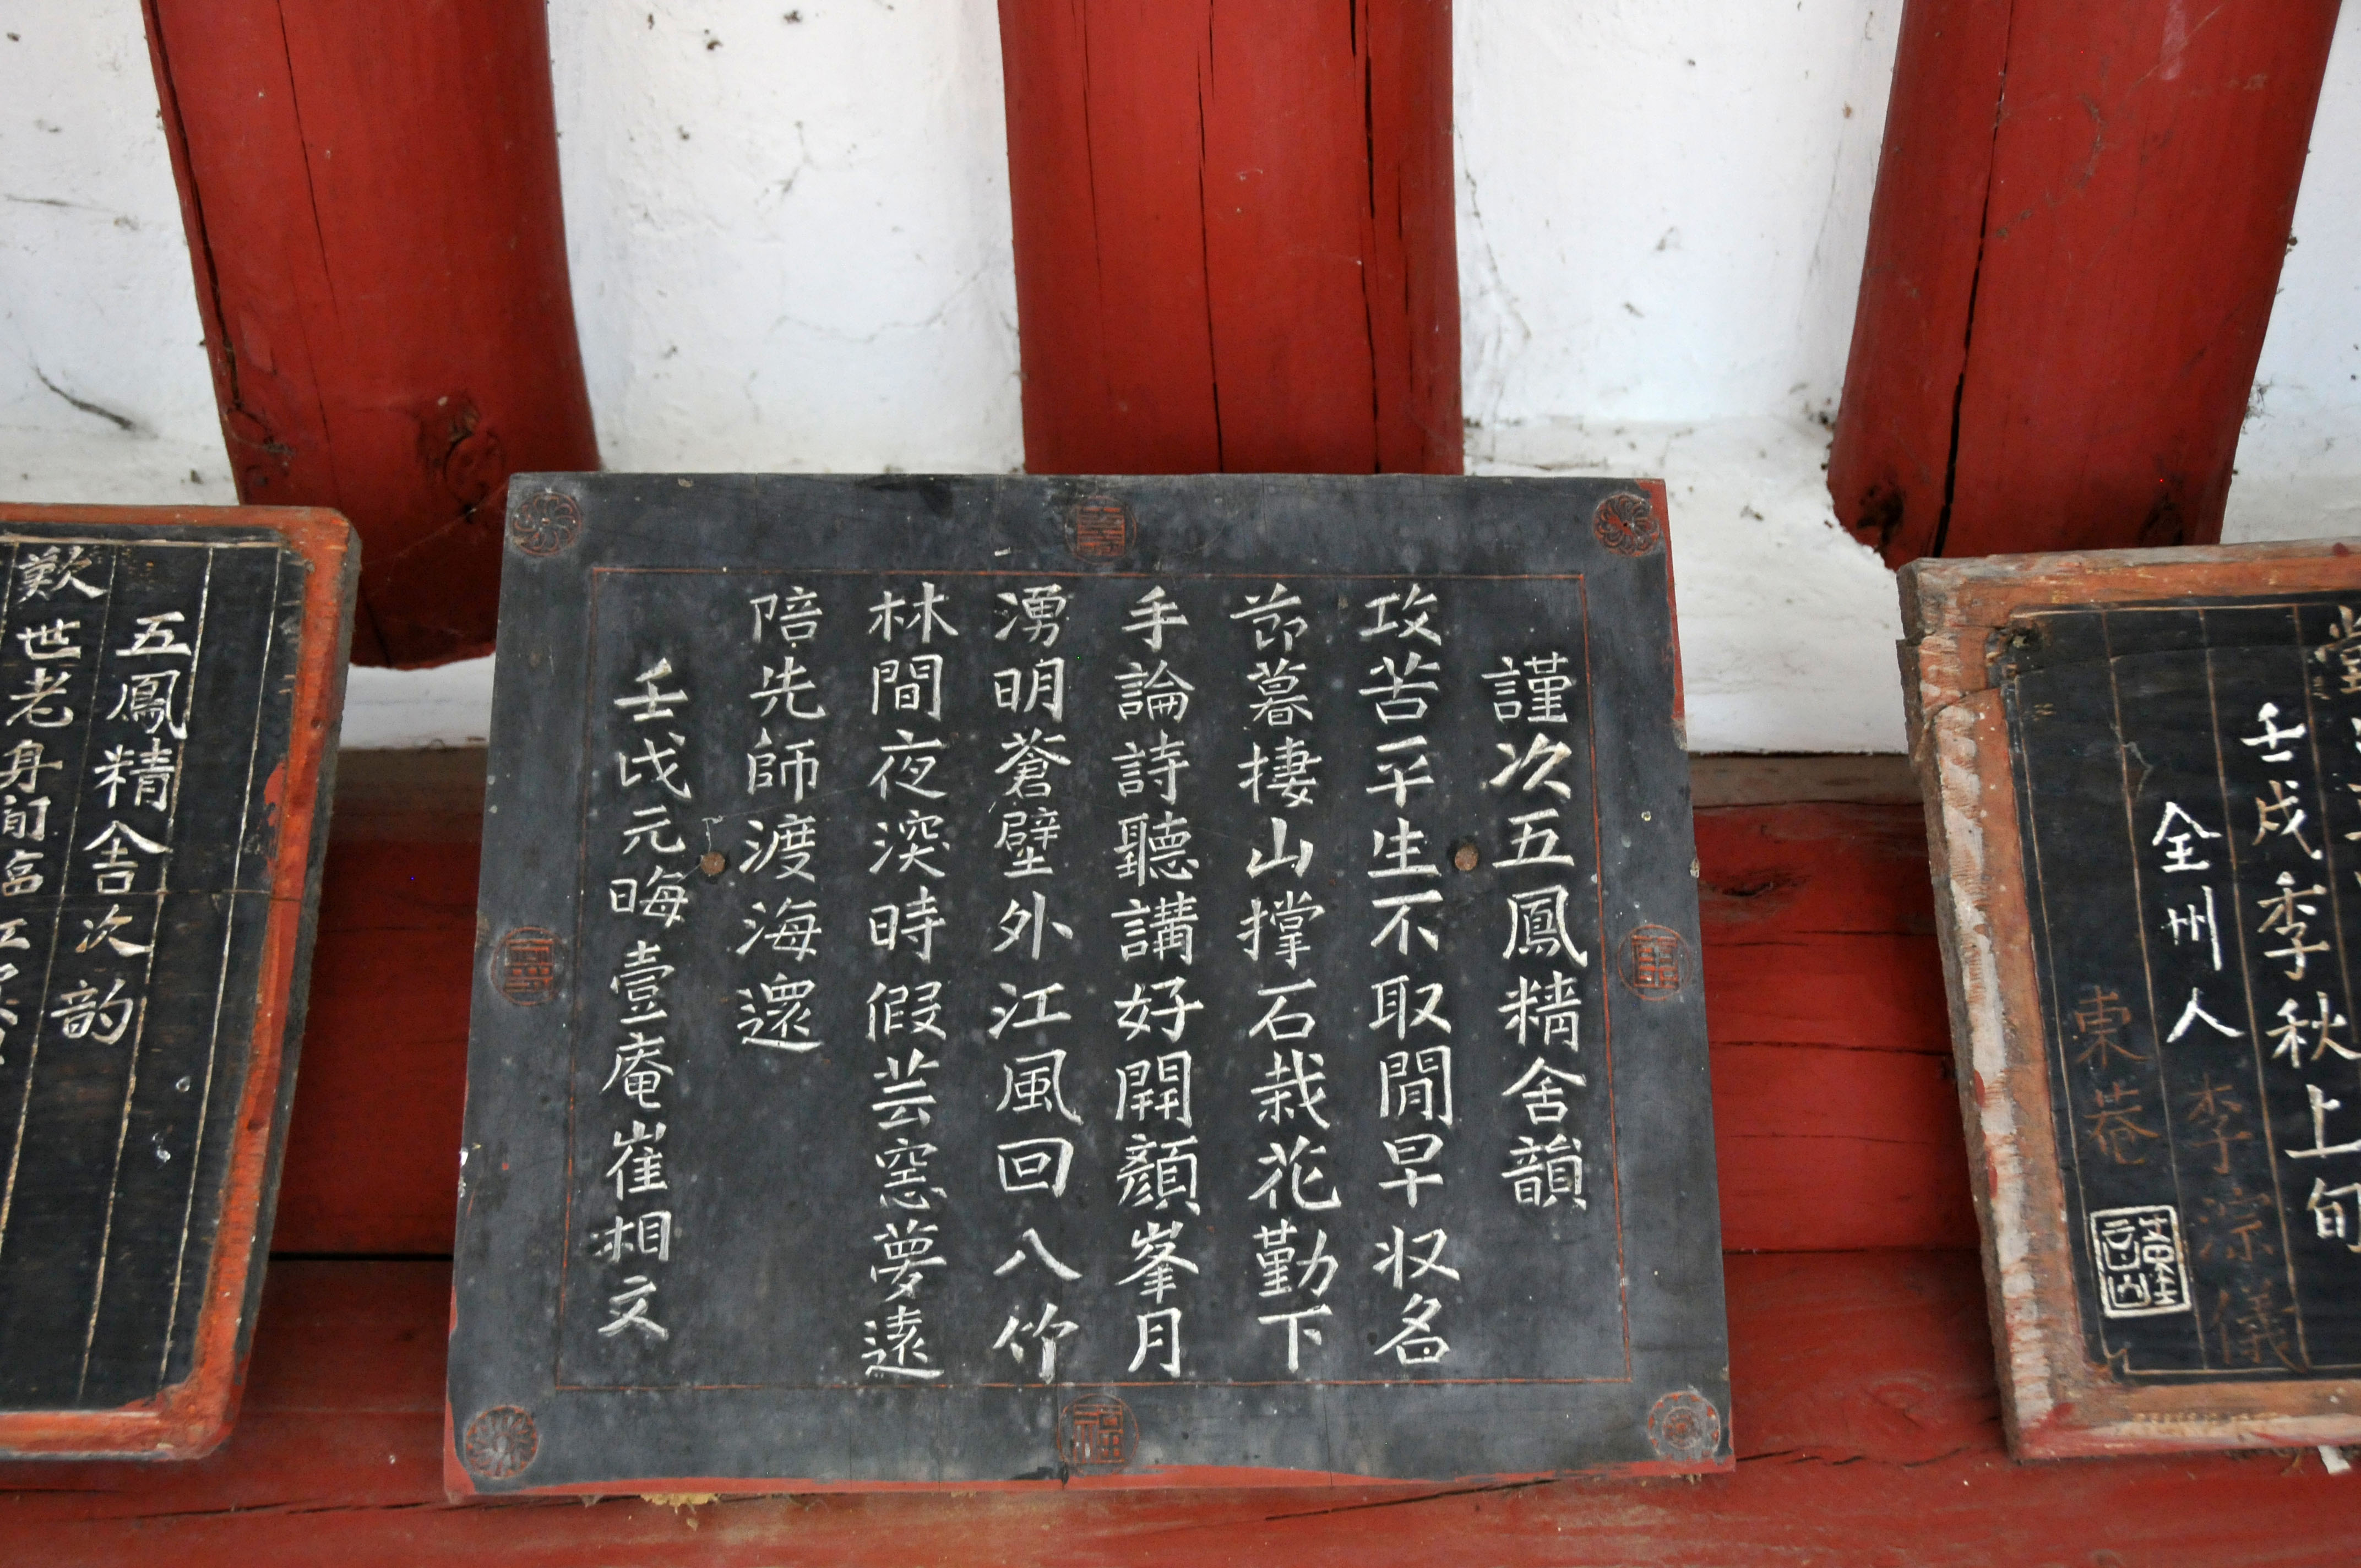 堂
壬戌季秋上旬
全州人 李淙儀
東菴
謹次五鳳精舍韻
攻苦平生不取閒早収名
莭暮捿山撑石栽花勤下
手論詩聽講好開顔峯月
湧明蒼壁外江風回八竹
林間夜深時假芸窓夢遠
陪先師渡海還
壬戌元晦壹庵崔相文
五鳳精舍次韵
歎世老身旬